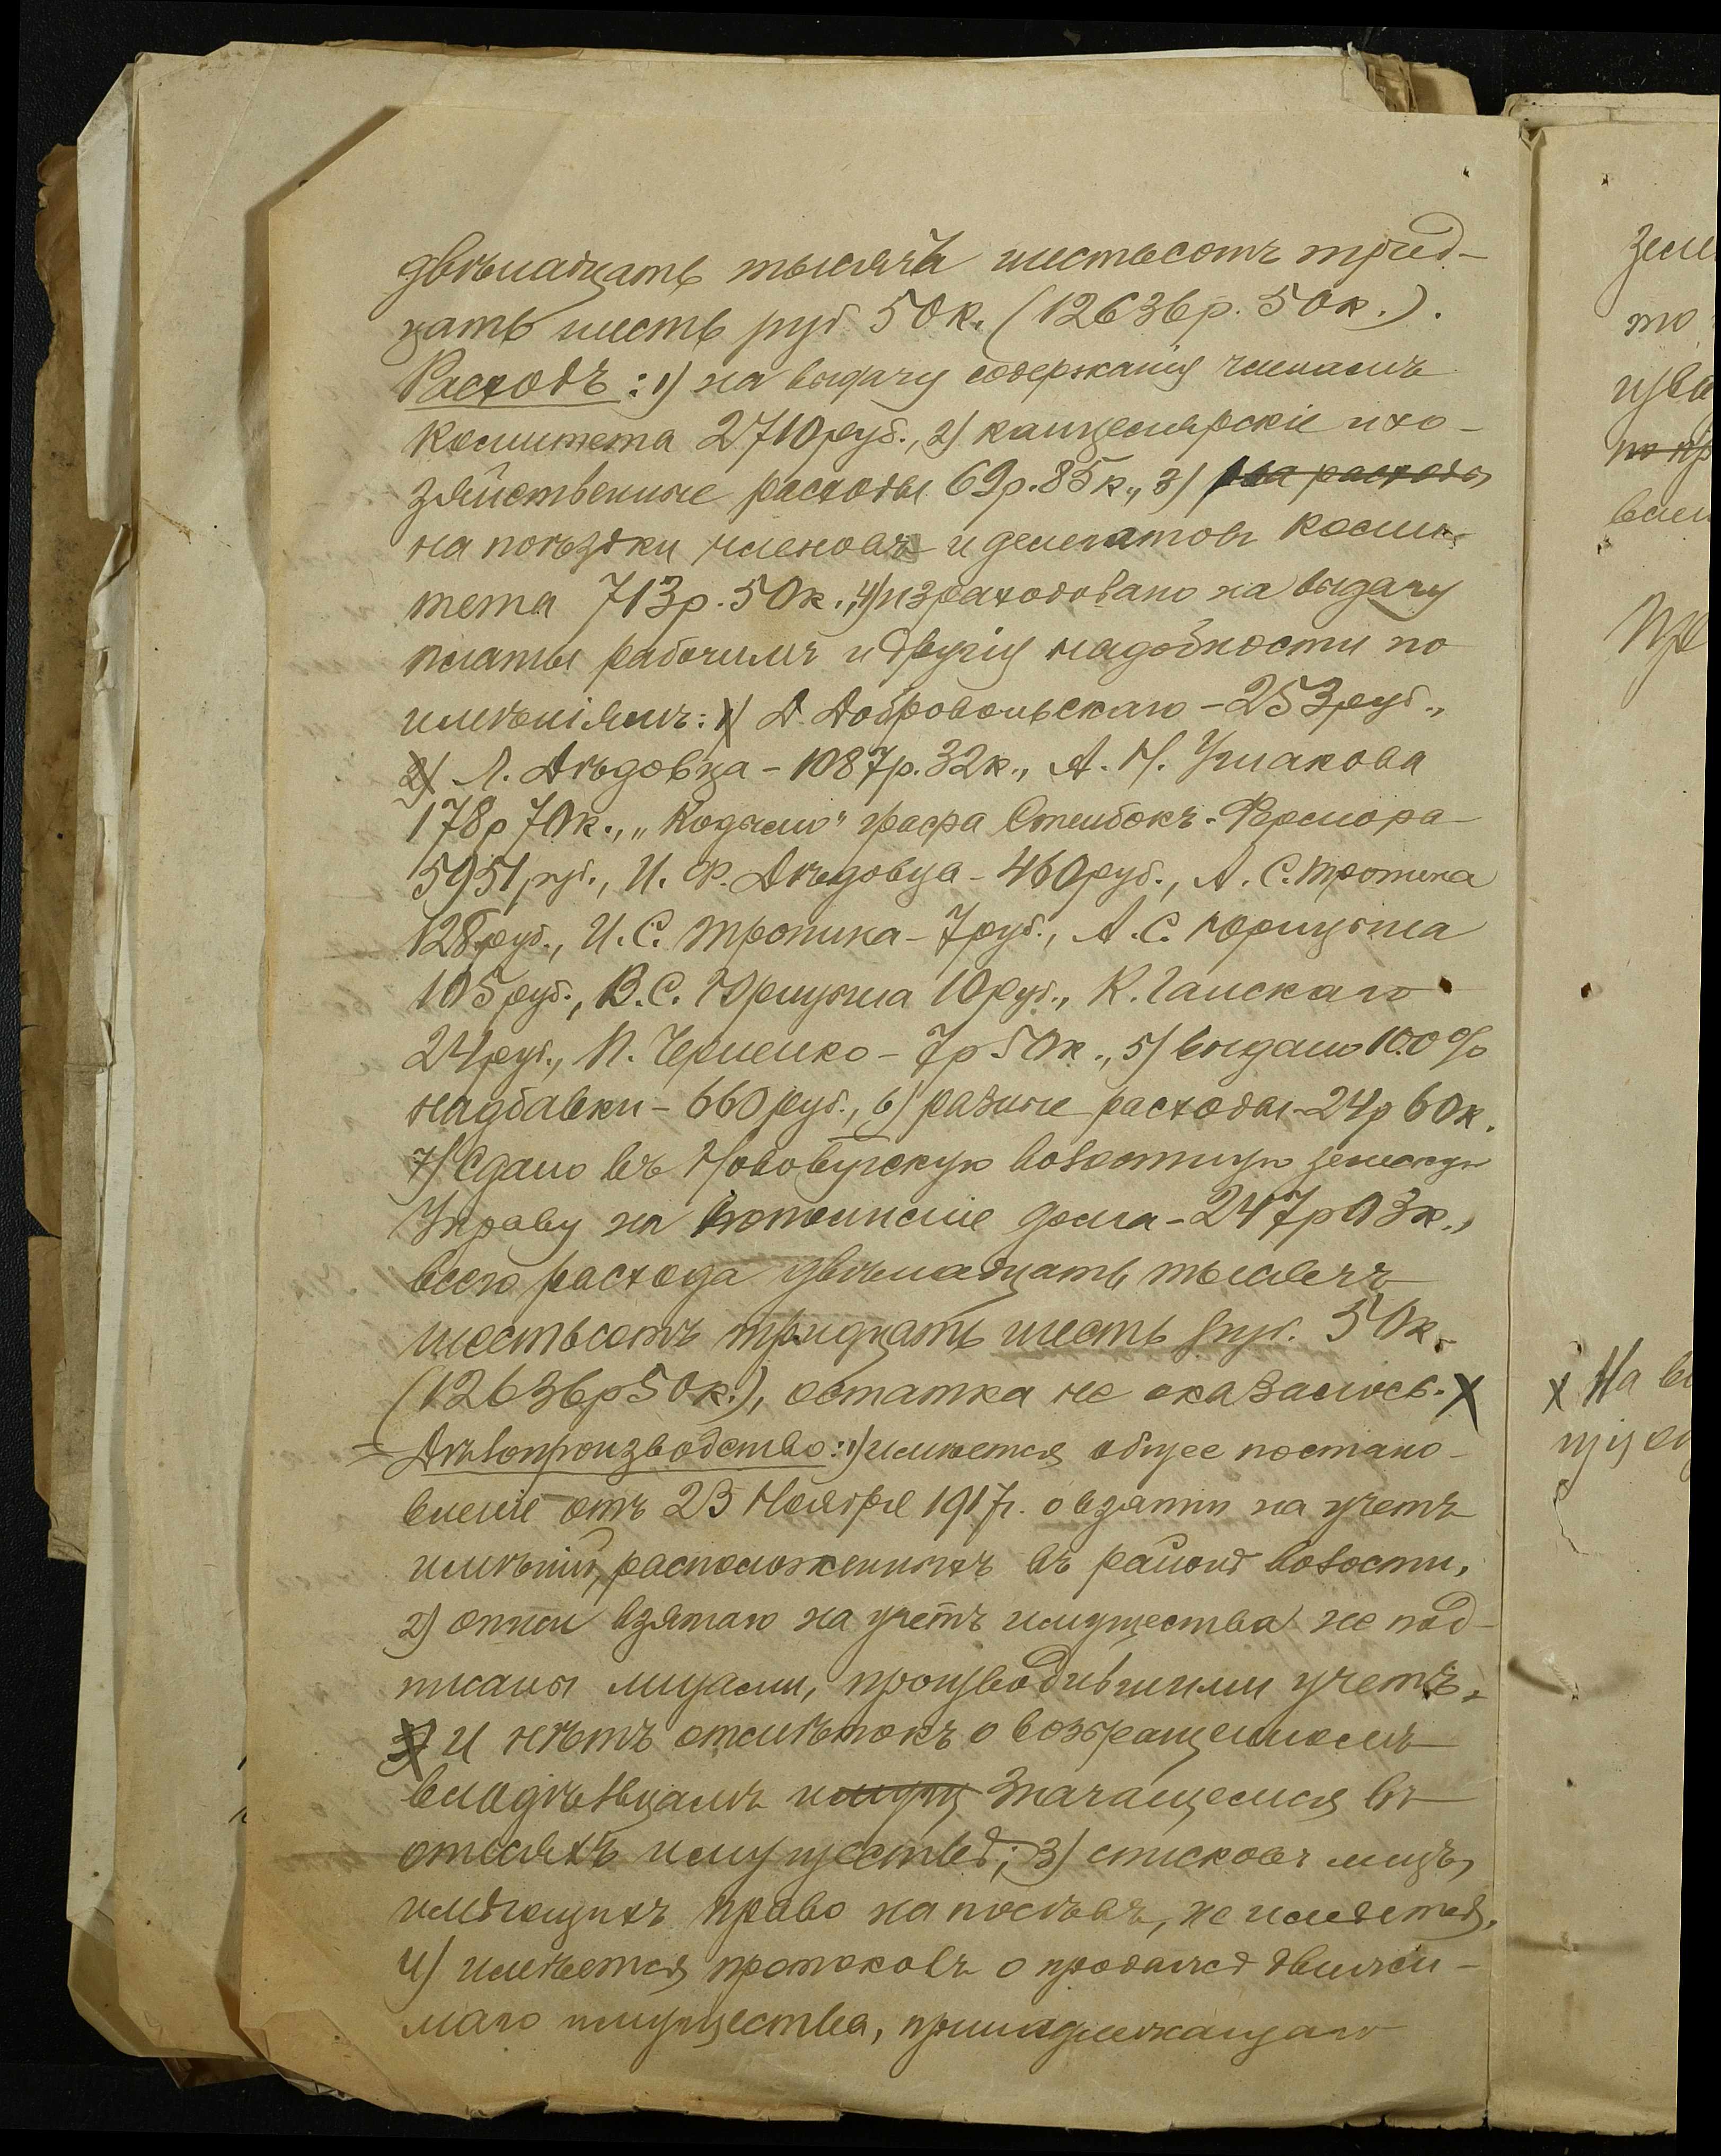 двѣнадцать тысячъ шестьсотъ трид-
цать шесть руб. 50 к. (12636 р. 50 к.).
Расходъ: 1) на выдачу содержанія членамъ
Комитета 2710 руб., 2) канцелярскіе и хо-
зяйственные расходы 69 р. 85 к., 3) на расходы
на поѣздки членовъ и делегатовъ Коми-
тета 713 р. 50 к., 4) израсходовано на выдачу
платы рабочимъ и другія надобности по
имѣніямъ: 1) А. Добровольскаго - 253 руб.,
2) Л. Дѣдовца - 1087 р. 32 к., А. Н. Ушакова
178 р 70 к., "Кодымо" графа Стенбокъ-Фермора -
5951 руб., И. Ф. Дѣдовца - 460 руб., А. С. Тропина
128 руб., И. С. Тропина - 7 руб., А. С. Юрицына
105 руб., В. С. Юрицына 10 руб., К. Ганскаго
24 руб., П. Черненко - 7 р 50 к., 5) выдано 100%
надбавки - 660 руб., 6) разные расходы - 24 р 60 к.
7) Сдано въ Новобугскую волостную земскую
Управу на пополненіе долга - 247 р 03 к.,
всего расхода двѣнадцать тысячъ
шестьсотъ тридцать шесть руб. 50 к.
(12636 р 50 к.), остатка не оказалось. х
Дѣлопроизводство: 1) имѣется общее постано-
вленіе отъ 23 Ноября 1917 г. о взятіи на учетъ
имѣній, расположенныхъ въ районѣ волости,
2) описи взятаго на учетъ имущества не под-
писаны лицами, производившими учетъ,
3) и нѣтъ отмѣтокъ о возвращенномъ
владѣльцамъ имущ значащемся въ
описяхъ имуществѣ; 3) списковъ лицъ,
имѣющихъ право на посѣвъ, не имѣется,
4) имѣется протоколъ о продажѣ движи-
маго имущества, принадлежащаго
х На